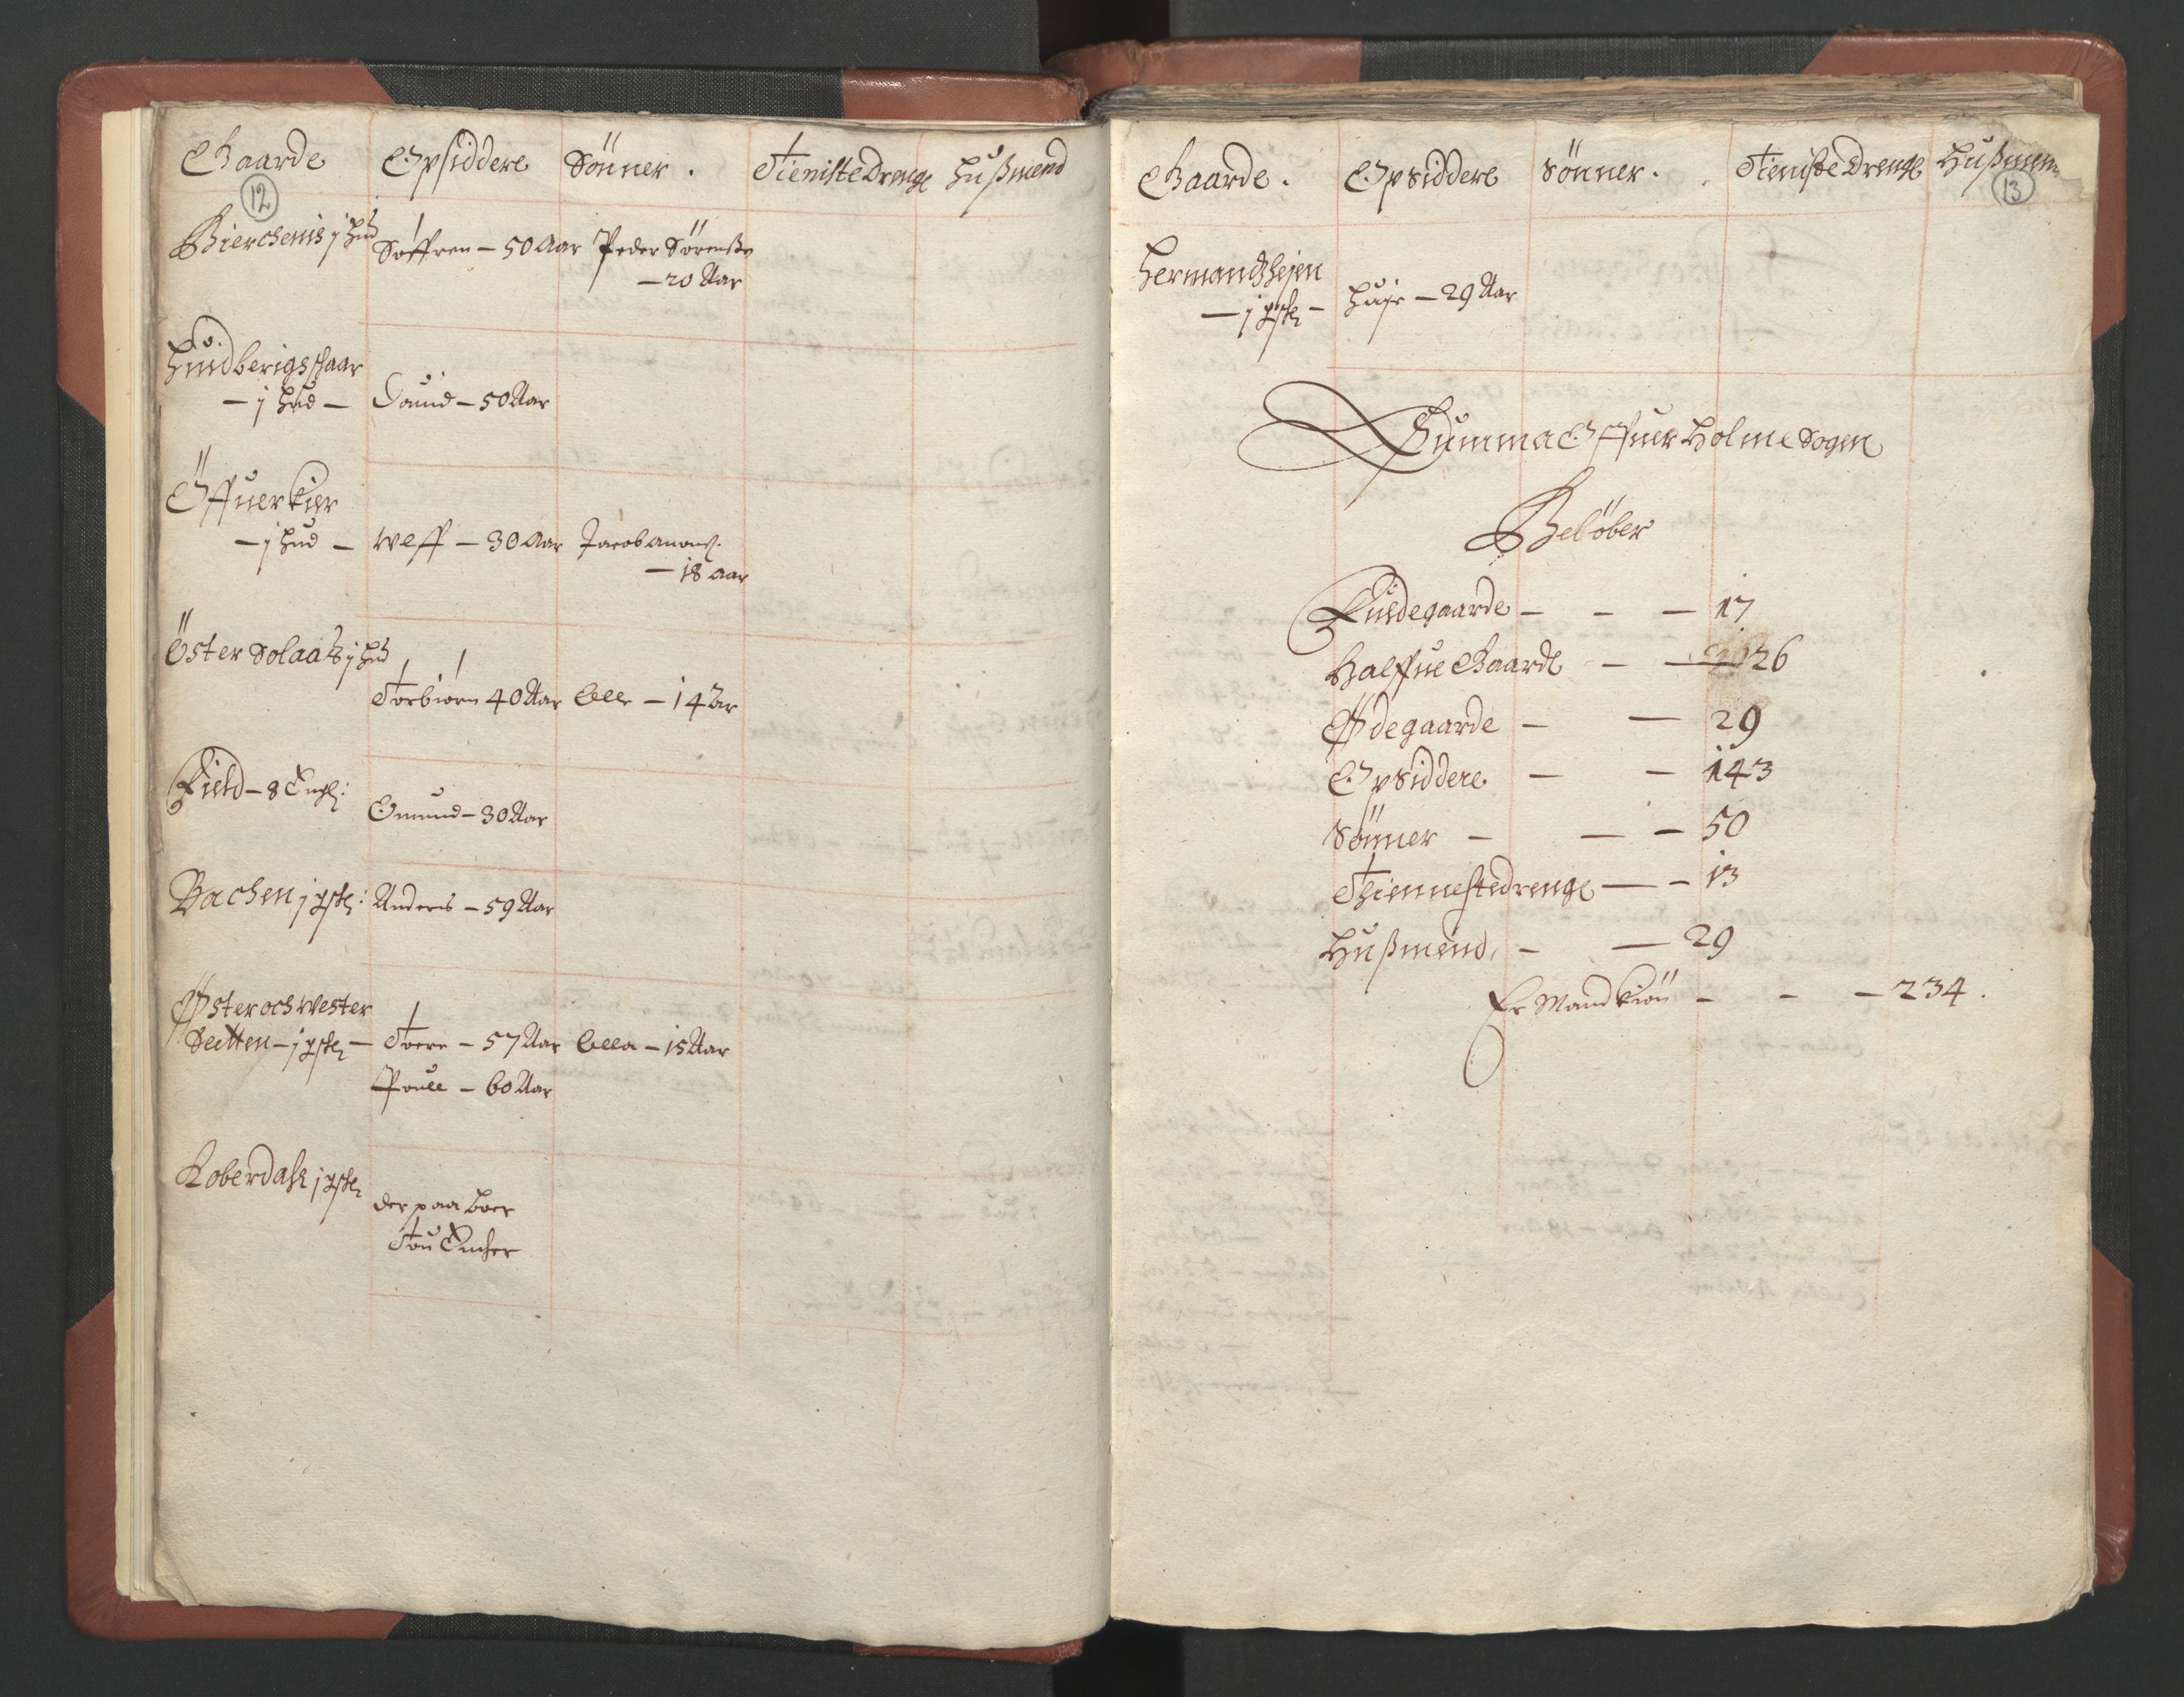 Gaarde Opsiddere Sönner. Tieniste Drenge Hußmend
12
Bierchenis j hud Söffren – 50 Aar Peder Sörenß
– 20 Aar
Hundbergsschaar
– j hud – Dauid – 50 Aar
Öffuer Kier
– j hud – Weff – 30 Aar Jacob
– 18 aar
Öster Solaas j hud
Torbiorn 40 Aar Olle – 14 Aar
Field – 8 Engl:
Omund – 30 Aar
Bachen j pstl: Anders – 59 Aar
Öster och Wester
Sletten – j pstl – Tore – 57 Aar Olla – 15 Aar
Pouell – 60 Aar
Roberdahl j pstl
der paa boer
Tou Encher
Gaarde. Opsiddere Sönner. Tieniste Drenge Hußmen
13
Hermandshejen
– j pstl – – 29 Aar
Summa Offuer Holme Sogen
Belöber
Fuldegaarde – – – 17
Halffue Gaarde – – 26
Ödegaarde – – 29
Opsiddere – – 143
Sönner – – – 50
Thiennestedrenge – – 13
Hußmend, – – 29
Er Mand Kiön – – – 234.